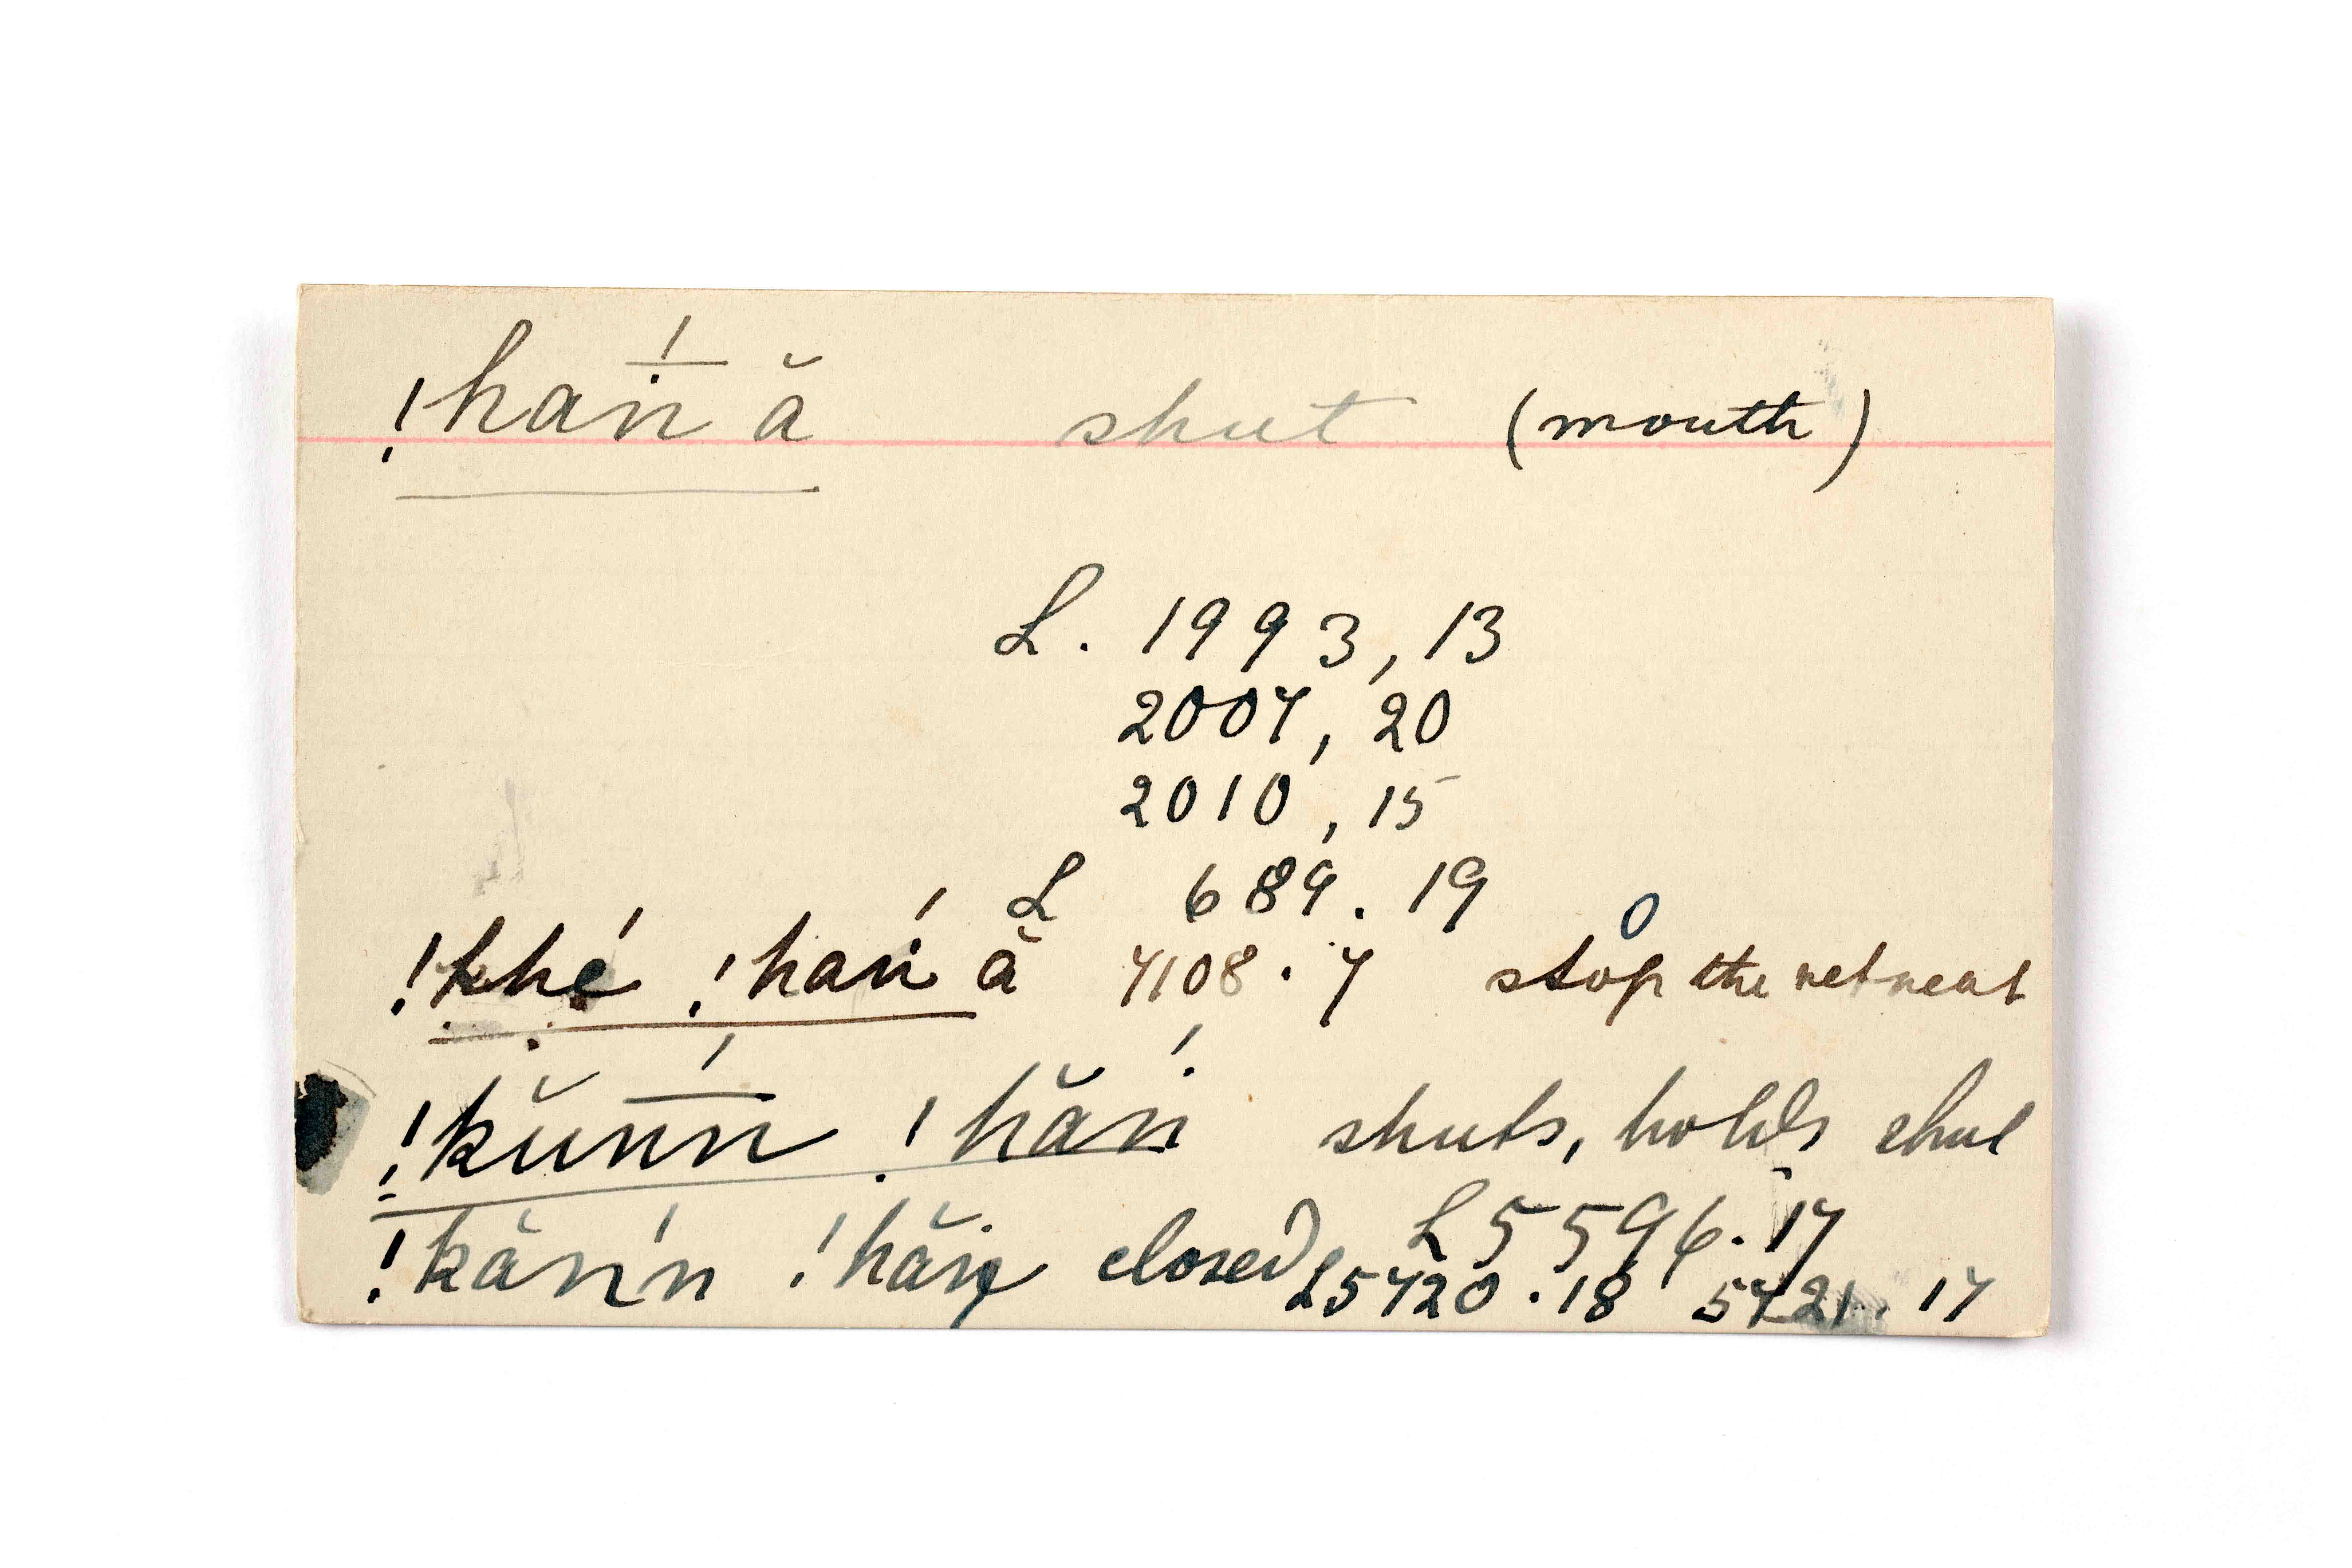 !hań ă shut (mouth)
L. 1993, 13
2004, 20
2010, 15
L 689. 19
!khé !hań ă 4108. 4 stop the retreat
!kŭnn̄́ !hăń shuts, holds shut
L 5596. 17
!kăn'n !hăṅ closed L5420. 18 5421. 17